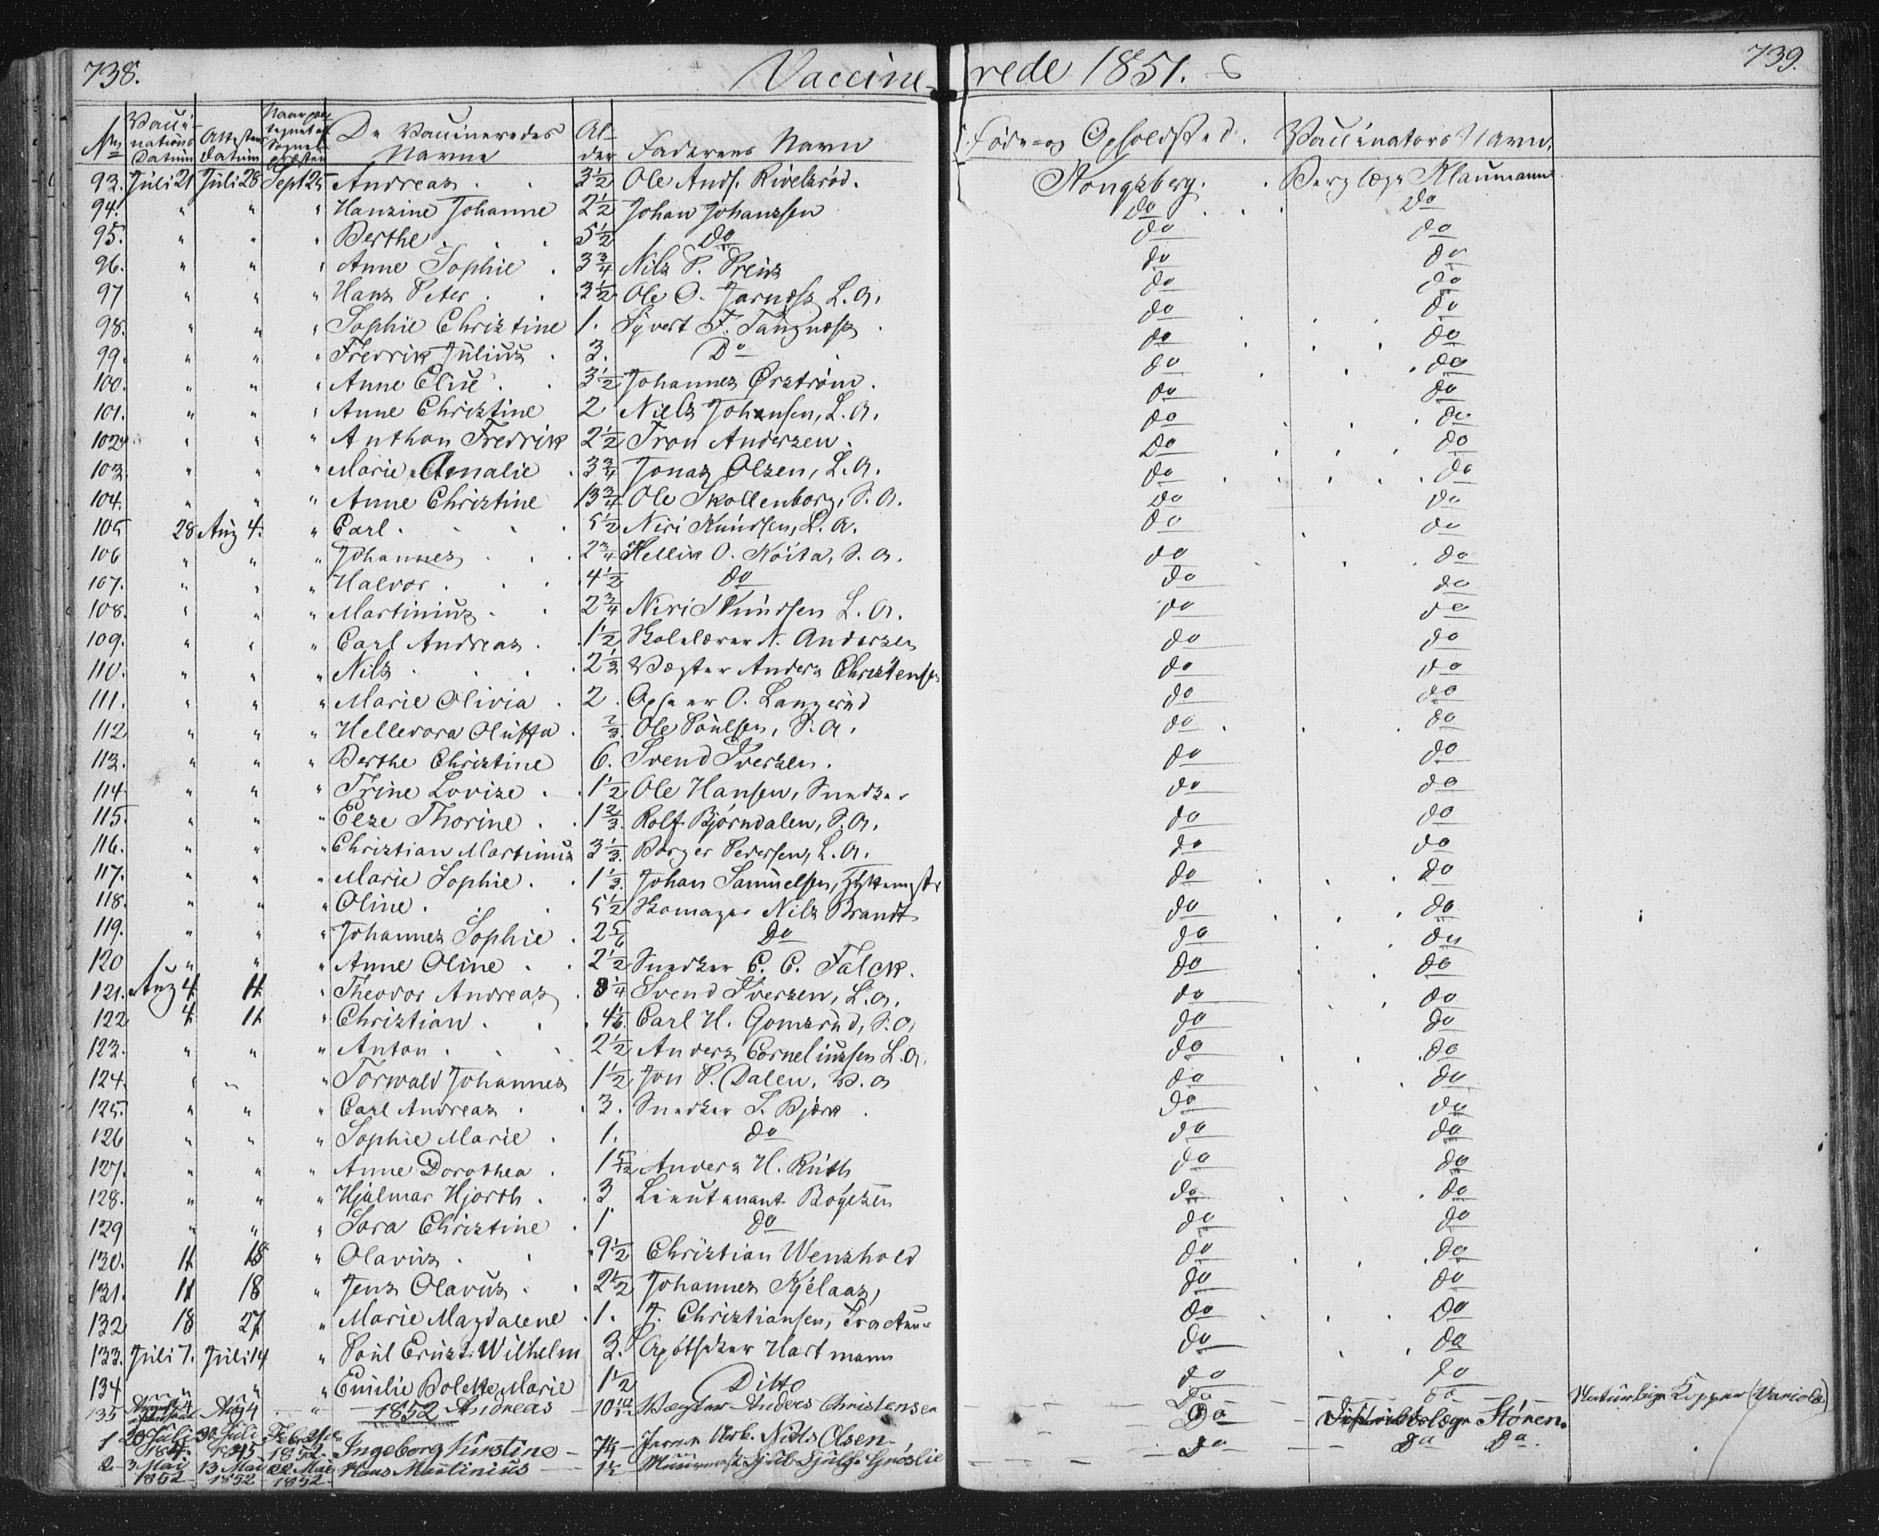 738. Vaccine- rede 1851. 739.
No Vacci-nations Datum Attestens Datum Naar paa-tegnet af Sogne-præsten De Vaccineredes Navne Al-der Faderens Navn Føde- og Opholdsted. Vaccinators Navn.
93. Juli 21 Juli 28 Sept 25 Andreas 3 1/2 Ole Ands. Kongsberg. Berglæge Klaumann
94. " " " Hansine Johanne 2 1/2 Johan Johanssen do do
95. " " " Berthe 5 1/2 Do do do
96. " " " Anne Sophie 3 3/4 Nils P. Preus do do
97 " " " Hans Peter 3 1/2 Ole O. L. A. do do
98. " " " Sophie Christine 1. Syvert F. do do
99. " " " Fredrik Julius 3. Do do do
100. " " " Anne Elise 3 1/2 Johannes Ørström. do do
101. " " " Anne Christine 2 Niels Johansen, L. A. do do
102 " " " Anthon Fredrik 2 1/2 Tron Andersen. do do
103. " " " Marie Amalie 3 3/4 Jonas Olsen, L. A. do do
104. " " " Anne Christine 13 3/4 Ole Skollenborg, S. A. do do
105 28 Aug 4. " Carl 5 1/2 Niri Knudsen, L. A. do do
106 " " " Johannes 2 3/4 Hellik O. S. A. do do
107. " " " Halvor 4 1/2 do do do
108. " " " Martinius 2 3/4 Niri Knudsen L. A. do do
109. " " " Carl Andreas 1 1/2 Skolelærer N. Andersen do do
110. " " " Nils 2 1/3 Vægter Anders Christensen do do
111. " " " Marie Olivia 2. O. Langerud do do
112 " " " Hellevora Oluffa 2/3 Ole Poulsen, S. A. do do
113. " " " Berthe Christine 6. Svend Iversen. do do
114 " " " Trine Lovise 1 1/2 Ole Hansen, Snedker do do
115. " " " Else Thorine 1 2/3 Rolf Bjørndalen, S. A. do do
116. " " " Christian Martinus 3 1/3 Borger Pedersen, L. A. do do
117. " " " Marie Sophie 1 1/3 Johan Samuelsen, do do
118. " " " Oline 5 1/2 Skomager Nils Brandt do do
119. " " " Johannes Sophie 2 5/6 Do do do
120 " " " Anne Oline 2 1/2 Snedker C. C. Falck. do do
121. Aug 4 11 " Theodor Andreas 8 1/4 Svend Iversen, L. A. do do
122 4 11 " Christian 4 1/6 Carl H. Gomsrud, S. A. do do
123. " " " Anton 2 1/2 Anders Corneliussen L. A. do do
124. " " " Torwald Johannes 1 1/2 Jon P. Dalen, do do
125. " " " Carl Andreas 3. Snedker S. Bjørk do do
126 " " " Sophie Marie 1. do do do
127. " " " Anne Dorothea 1 5/12 Anders H. Ruth do do
128. " " " Hjalmar Hjorth 3 Lieutenant Boyesen do do
129 " " " Sara Christine 1 do do do
130. 11 18 " Olavus 9 1/2 Christian Wenshold do do
131. 11 18 " Jens Olavus 2 1/2 Johannes Kjelaas, do do
132 18 27 " Marie Magdalene 1. J. Christiansen, do do
133. Juli 7. Juli 14 " Poul Ernst Wilhelm 3. Apotheker Hartmann do do
134 " " " Emilie Bolette Marie 1 1/2 Ditto do do
135 Aug 4 " Andreas 10 10/12 Vægter Anders Christensen Do do Naturlige Kopper (Variola)
1852
1 30 Juli 1852 Ingeborg Kirstine 7 1/4 Niels Olsen Do Districtslæge Stören.
2 3 Mai 1852 13 Mai 1852 22 Mai 1852 Hans Martinius 1 1/2 Do Do Do.